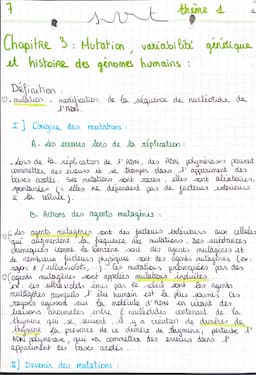 7 thème 1
SVT
Chapitre 3 : Mutation, variabilité génétique
et histoire des génomes humains :
Définition :
- mutation : modification de la séquence de nucléotide de
l'ADN.
I] L'origine des mutations :
A. Les erreurs lors de la réplication :
- Lors de la réplication de l'ADN, des ADN polymérases peuvent
commettre des erreurs et se tromper dans l'appariement des
bases azotés. Ces mutations sont rares, elles sont aléatoires,
spontanées (= elles ne dépendent pas de facteurs extérieurs
à la cellule).
B. Actions des agents mutagènes :
- Les agents mutagènes sont des facteurs extérieurs aux cellules
qui augmentent la fréquence des mutations. Des substances
chimiques comme le benzène sont des agents mutagènes et
de nombreux facteurs physiques sont des agents mutagènes (ex:
rayon X / ultraviolets, ...). Les mutations provoquées par des
agents mutagènes sont appelées mutations induites.
ex: les ultraviolets émis par le soleil sont les agents
mutagènes auxquels l'être humain est le plus soumis. Ces
rayons agissent sur la molécule d'ADN en créant des
liaisons anormales entre 2 nucléotides contenant de la
thymine qui se suivent, il y a création de dimères de
thymine. La présence de ce dimère de thymine, perturbe l'
ADN polymérase, qui va commettre des erreurs dans l'
appariement des bases azotés.
II] Devenir des mutations :